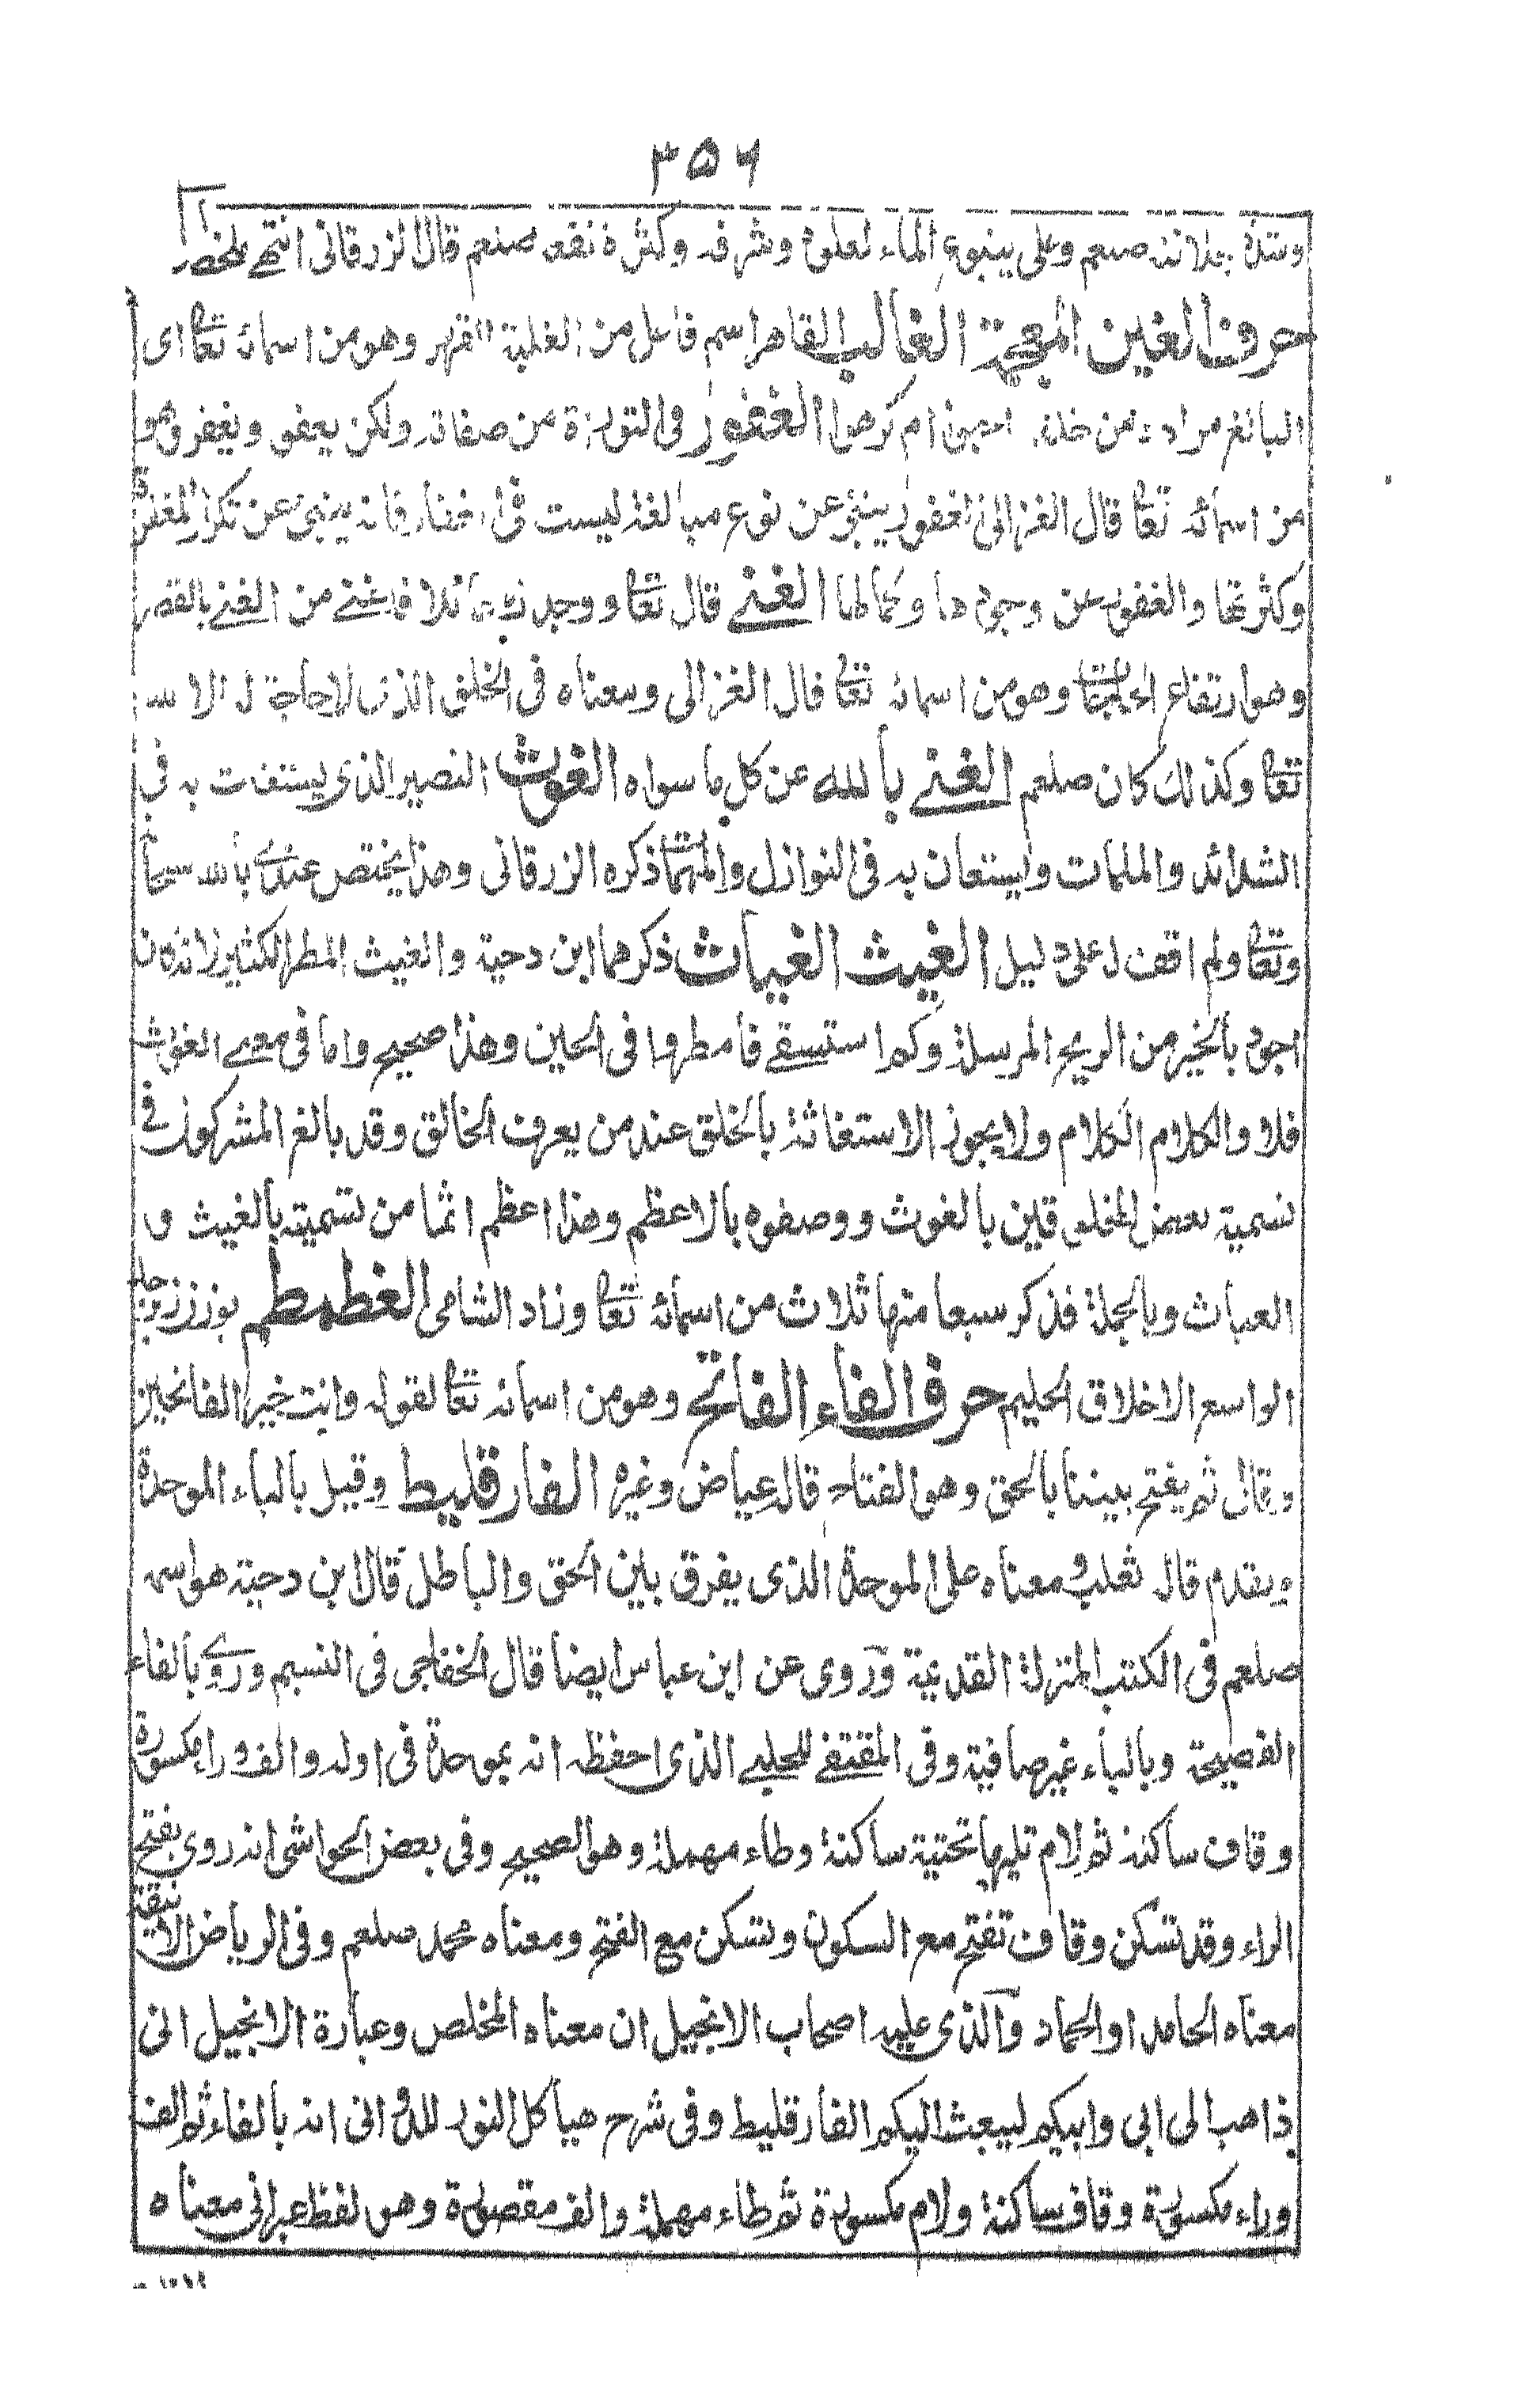 ٣٥٦
وشدة جلالته صلعم وعلى ينبوع الماء لعلوه وشرفه وكثرة نفعه صلعم قال الزرقانى انتهى ملخصا
حرف الغين المعجمة الغالب القاهر اسم فاعل من الغلبة القهر وهو من اسمائه تعا اى
البالغ مراده من خلقه احبوا ام كرهوا الغفور فى التورٰة من صفاته ولكن يعفو ويغفر وهو
من اسمائه تعا قال الغزالى الغفور ينبئ عن نوع مبالغة ليست فى الغفار فانه ينبئ عن تكرار المغفرة
وكثرتها والغفور عن وجودها وكمالها الغنى قال تعا ووجدك عائلا فاغنى من الغنى بالقصر
وهو ارتفاع الحاجات وهو من اسمائه تعا قال الغزالى ومعناه فى الخلق الذى لا حاجة له الا لله
تعا وكذلك كان صلعم الغنى بالله عن كل ما سواه الغوث النصير الذى يستغاث به فى
الشدائد والملمات ويستعان به فى النوازل والمهمات ذكره الزرقانى وهذا يختص عندى بالله سبحا
وتعا ولم اقف له على دليل الغيث الغياث ذكرهما ابن دحية والغيث المطر الكثير لانه كان
اجود بالخير من الريح المرسلة وكم استسقى فامطروا فى الحين وهذا صحيح واما فى معنى الغوث
فلا والكلام الكلام ولا يجوز الاستغاثة بالخلق عند من يعرف الخالق وقد بالغ المشركون فى
تسمية بعض المخلوقين بالغوث ووصفوه بالاعظم وهذا اعظم اثما من تسميته بالغيث و
الغياث وبالجملة فذكر سبعا منها ثلاث من اسمائه تعا وزاد الشامى الغطمطم بوزن زبرجد
الواسع الاخلاق الحليم حرف الفاء الفاتح وهو من اسمائه تعا لقوله وانت خير الفاتحين
وقال ثم يفتح بيننا بالحق وهو الفتاح قاله عياض وغيره الفارقليط وقيل بالباء الموحدة
ويقدم قال ثعلب ومعناه على الموحدة الذى يفرق بين الحق والباطل قال ابن دحية هو اسمه
صلعم فى الكتب المنزلة القديمة وروى عن ابن عباس ايضا قال الخفاجى فى النسيم وروى بالفاء
الفصيحة وبالباء غير صافية وفى المقتفى للحلبى الذى احفظه انه بموحدة فى اوله والف وراء مكسورة
وقاف ساكنة ثم لام تليها تحتية ساكنة وطاء مهملة وهو الصحيح وفى بعض الحواشى انه روى بفتح
الراء وقد تسكن وقاف تفتح مع السكون وتسكن مع الفتح ومعناه محمد صلعم وفى الرياض الانيقة
معناه الحامد او الحماد والذى عليه اصحاب الانجيل ان معناه المخلص وعبارة الانجيل انى
ذاهب الى ابى وابيكم ليبعث اليكم الفارقليط وفى شرح هياكل النور للدوانى انه بالفاء ثم الف
وراء مكسورة وقاف ساكنة ولام مكسورة ثم طاء مهملة والف مقصورة وهو لفظ عبرانى معناه